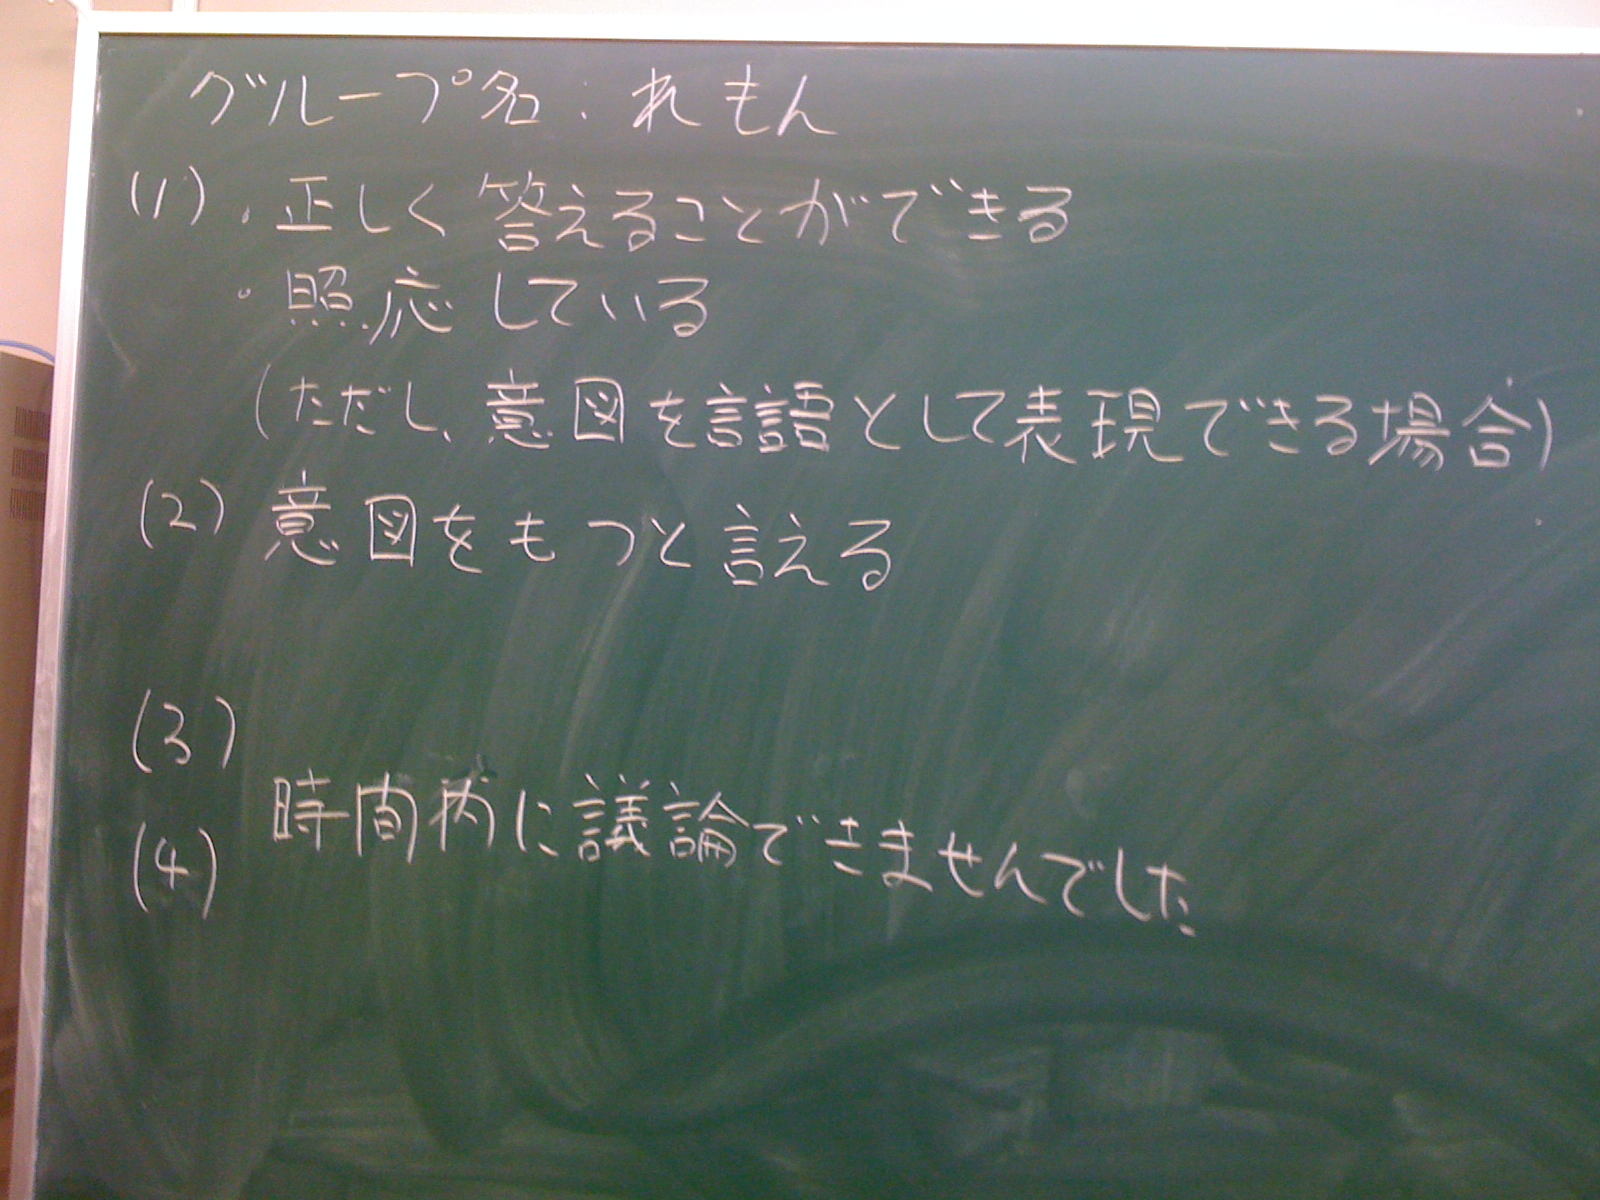 グループ名:れもん
(1)・正しく答えることができる
・照応している
(ただし、意図を言語として表現できる場合)
(2)意図をもつと言える
(3)
時間内に議論できませんでした
(4)